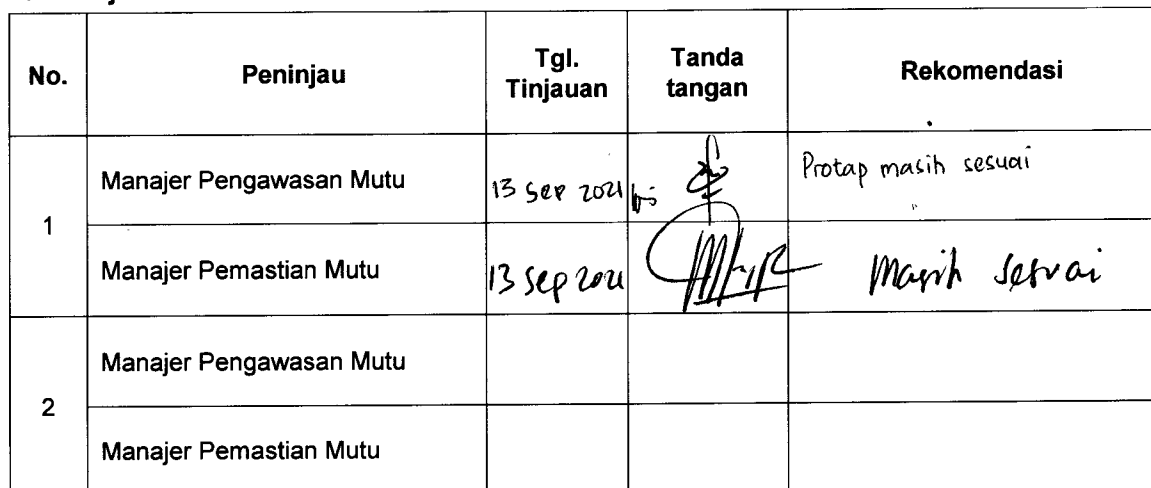 No. Peninjau Tgl. Tinjauan Tanda tangan Rekomendasi
1 Manajer Pengawasan Mutu 13 Sep 2021 Protap masih sesuai
Manajer Pemastian Mutu 13 Sep 2021 Masih sesuai
2 Manajer Pengawasan Mutu
Manajer Pemastian Mutu